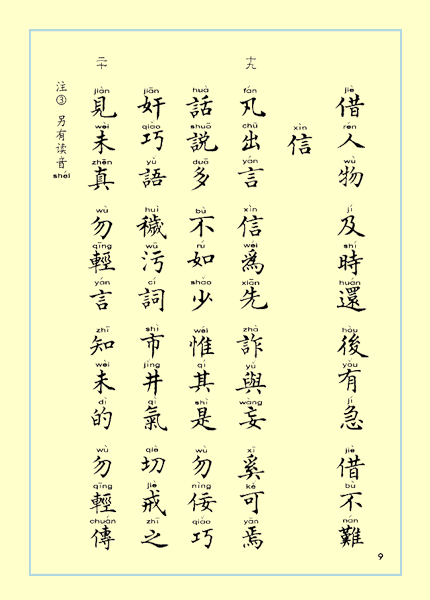 jiè rén wù jí shí huán hòu yǒu jí jiè bù nán
借人物 及時還 後有急 借不難
xìn
信
十九
fán chū yán xìn wéi xiān zhà yǔ wàng xī kě yān
凡出言 信爲先 詐與妄 奚可焉
huà shuō duō bù rú shǎo wéi qí shì wù nìng qiǎo
話説多 不如少 惟其是 勿佞巧
jiān qiǎo yǔ huì wū cí shì jǐng qì qiè jiè zhī
奸巧語 穢污詞 市井氣 切戒之
二十
jiàn wèi zhēn wù qīng yán zhī wèi dì wù qīng chuán
見未真 勿輕言 知未的 勿輕傳
注③ 另有读音 shéi
9